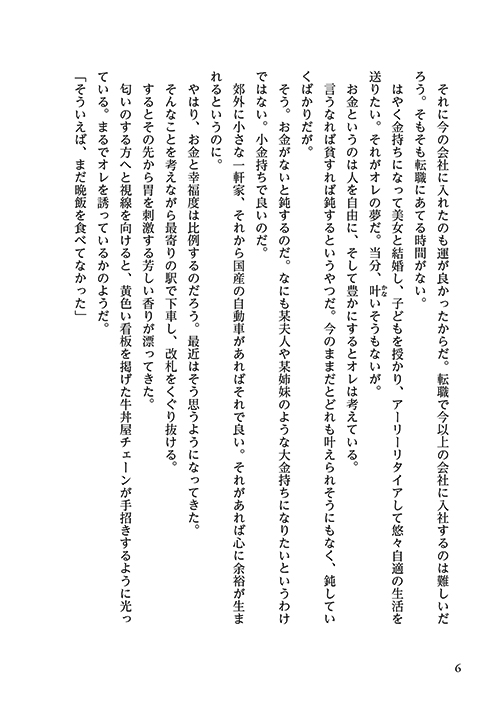 それに今の会社に入れたのも運が良かったからだ。転職で今以上の会社に入社するのは難しいだ
ろう。そもそも転職にあてる時間がない。
はやく金持ちになって美女と結婚し、子どもを授かり、アーリーリタイアして悠々自適の生活を
送りたい。それがオレの夢だ。当分、叶いそうもないが。
かな
お金というのは人を自由に、そして豊かにするとオレは考えている。
言うなれば貧すれば鈍するというやつだ。今のままだとどれも叶えられそうにもなく、鈍してい
くばかりだが。
そう。お金がないと鈍するのだ。なにも某夫人や某姉妹のような大金持ちになりたいというわけ
ではない。小金持ちで良いのだ。
郊外に小さな一軒家、それから国産の自動車があればそれで良い。それがあれば心に余裕が生ま
れるというのに。
やはり、お金と幸福度は比例するのだろう。最近はそう思うようになってきた。
そんなことを考えながら最寄りの駅で下車し、改札をくぐり抜ける。
するとその先から胃を刺激する芳しい香りが漂ってきた。
匂いのする方へと視線を向けると、黄色い看板を掲げた牛丼屋チェーンが手招きするように光っ
ている。まるでオレを誘っているかのようだ。
「そういえば、まだ晩飯を食べてなかった」
6